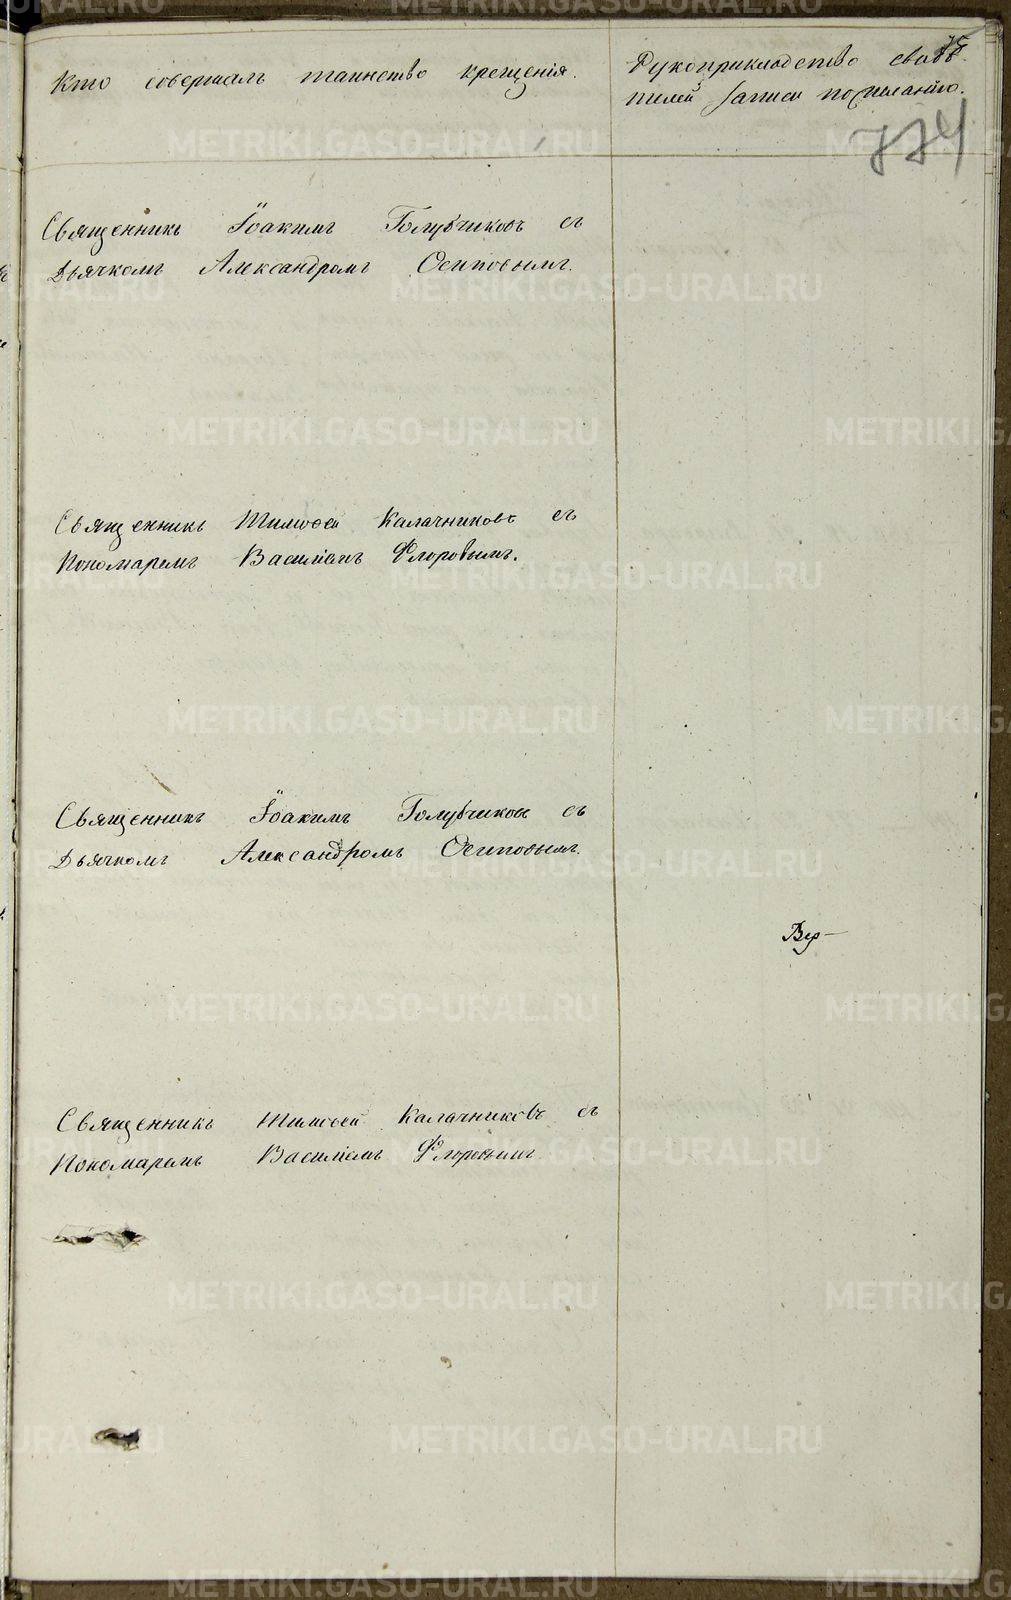 75
Кто совершалъ таинство крещенія.
Рукоприкладство свидѣ-
телей записи по желанію.
774
Священникъ Іоакимъ Голубчиковъ съ
Дьячкомъ Александромъ Осиповымъ.
Священникъ Тимоѳей Калачниковъ съ
Пономаремъ Василіемъ Флоровымъ.
Священникъ Іоакимъ Голубчиковъ съ
Дьячкомъ Александромъ Осиповымъ.
Священникъ Тимоѳей Калачниковъ съ
Пономаремъ Василіемъ Флоровымъ.
METRIKI.GASO-URAL.RU